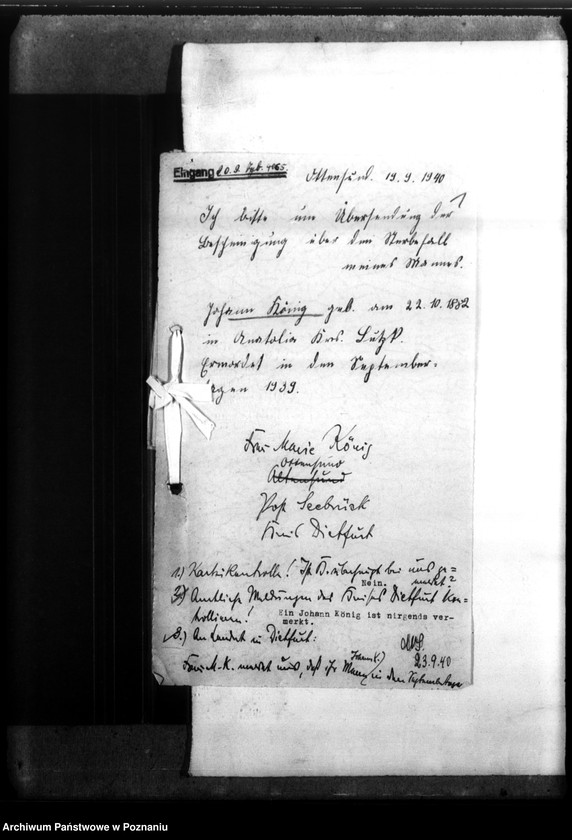 Eingang 20. 9.
Ottensund. 19. 9. 1940
Ich bitte um Übersendung der
Bescheinigung über den Sterbefall
meines Mannes.
Johann König geb. am 22.10.1882
in Anatolia Krs. Lutzk.
Ermordet in den September-
tagen 1939.
Frau Marie König
Ottensund
Altensund
Post Seebrück
Kreis Dietfurt
1.) Karteikontrolle! Ist K. überhaupt bei uns ge=
merkt?
Nein.
2.) Amtliche Meldungen des Kreises Dietfurt kon=
trollieren!
Ein Johann König ist nirgends ver-
merkt.
3.) An Landrat in Dietfurt:
23.9.40
Frau M. K. meldet uns, daß ihr Mann in den Septembertagen
Archiwum Państwowe w Poznaniu